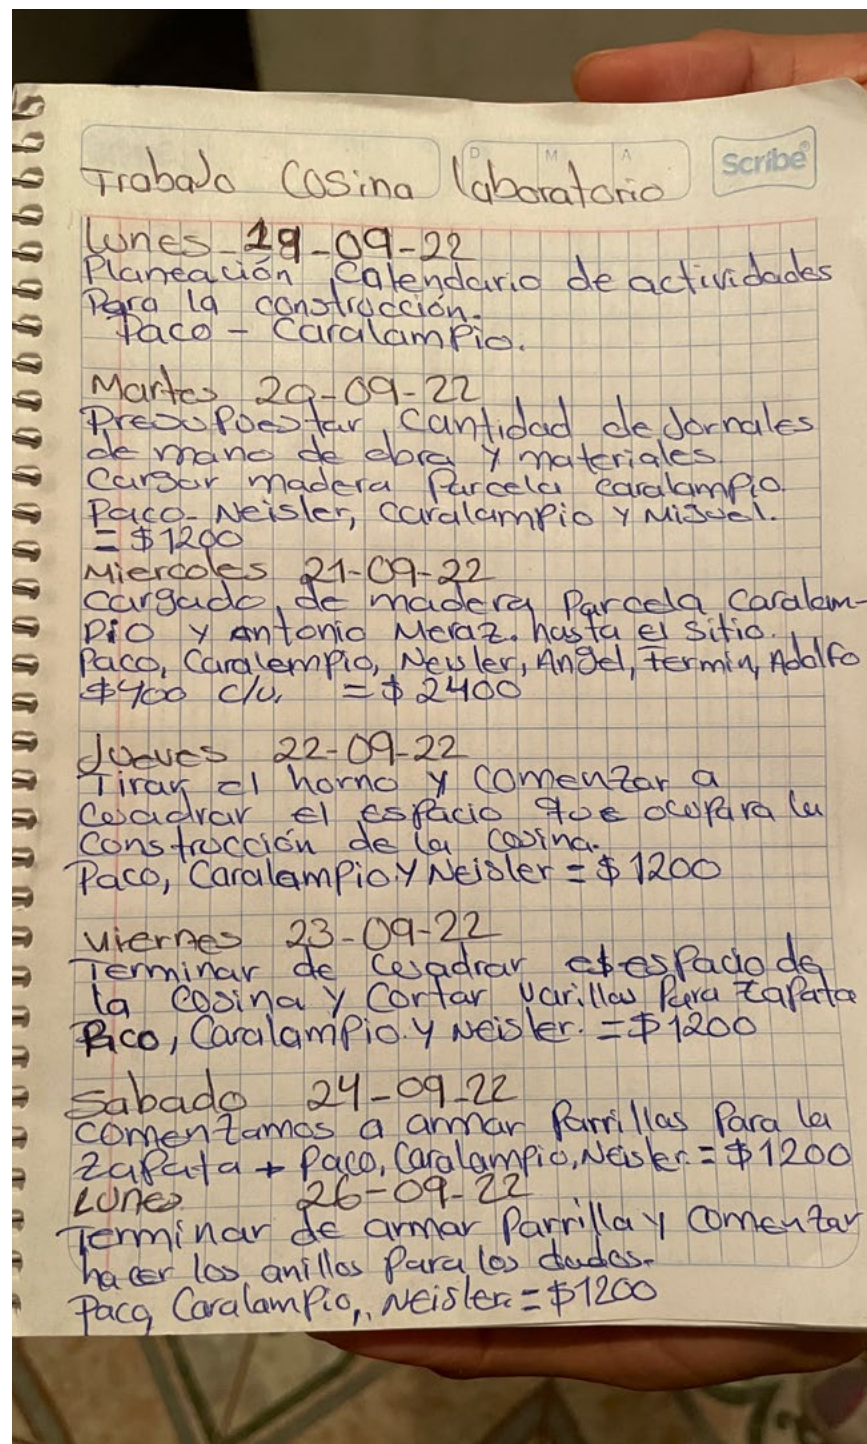 D M A
Scribe®
Trabajo Cosina Laboratorio
Lunes - 19-09-22
Planeación Calendario de actividades
Para la construcción.
Paco - Caralampio.
Martes 20-09-22
Presupuestar, cantidad de Jornales
de mano de obra y materiales.
Cargar madera Parcela Caralampio.
Paco- Neisler, Caralampio y Miguel.
= $1200
Miercoles 21-09-22
Cargado, de madera Parcela Caralam-
Pio y Antonio Meraz. hasta el sitio.
Paco, Caralempio, Neisler, Angel, Fermin, Adolfo
$400 c/u. = $2400
Jueves 22-09-22
Tirar el horno y comenzar a
Cuadrar el espacio que ocupara la
Construcción de la cosina.
Paco, Caralampio y Neisler = $1200
Viernes 23-09-22
Terminar de cuadrar el espacio de
la cosina y Cortar varillas Para zapata
Paco, Caralampio. y Neisler. = $1200
Sabado 24-09-22
Comenzamos a armar Parrillas Para la
zapata + Paco, Caralampio, Neisler. = $1200
Lunes 26-09-22
Terminar de armar Parrilla y Comenzar
hacer los anillos Para los dados.
Paco, Caralampio,, Neisler. = $1200